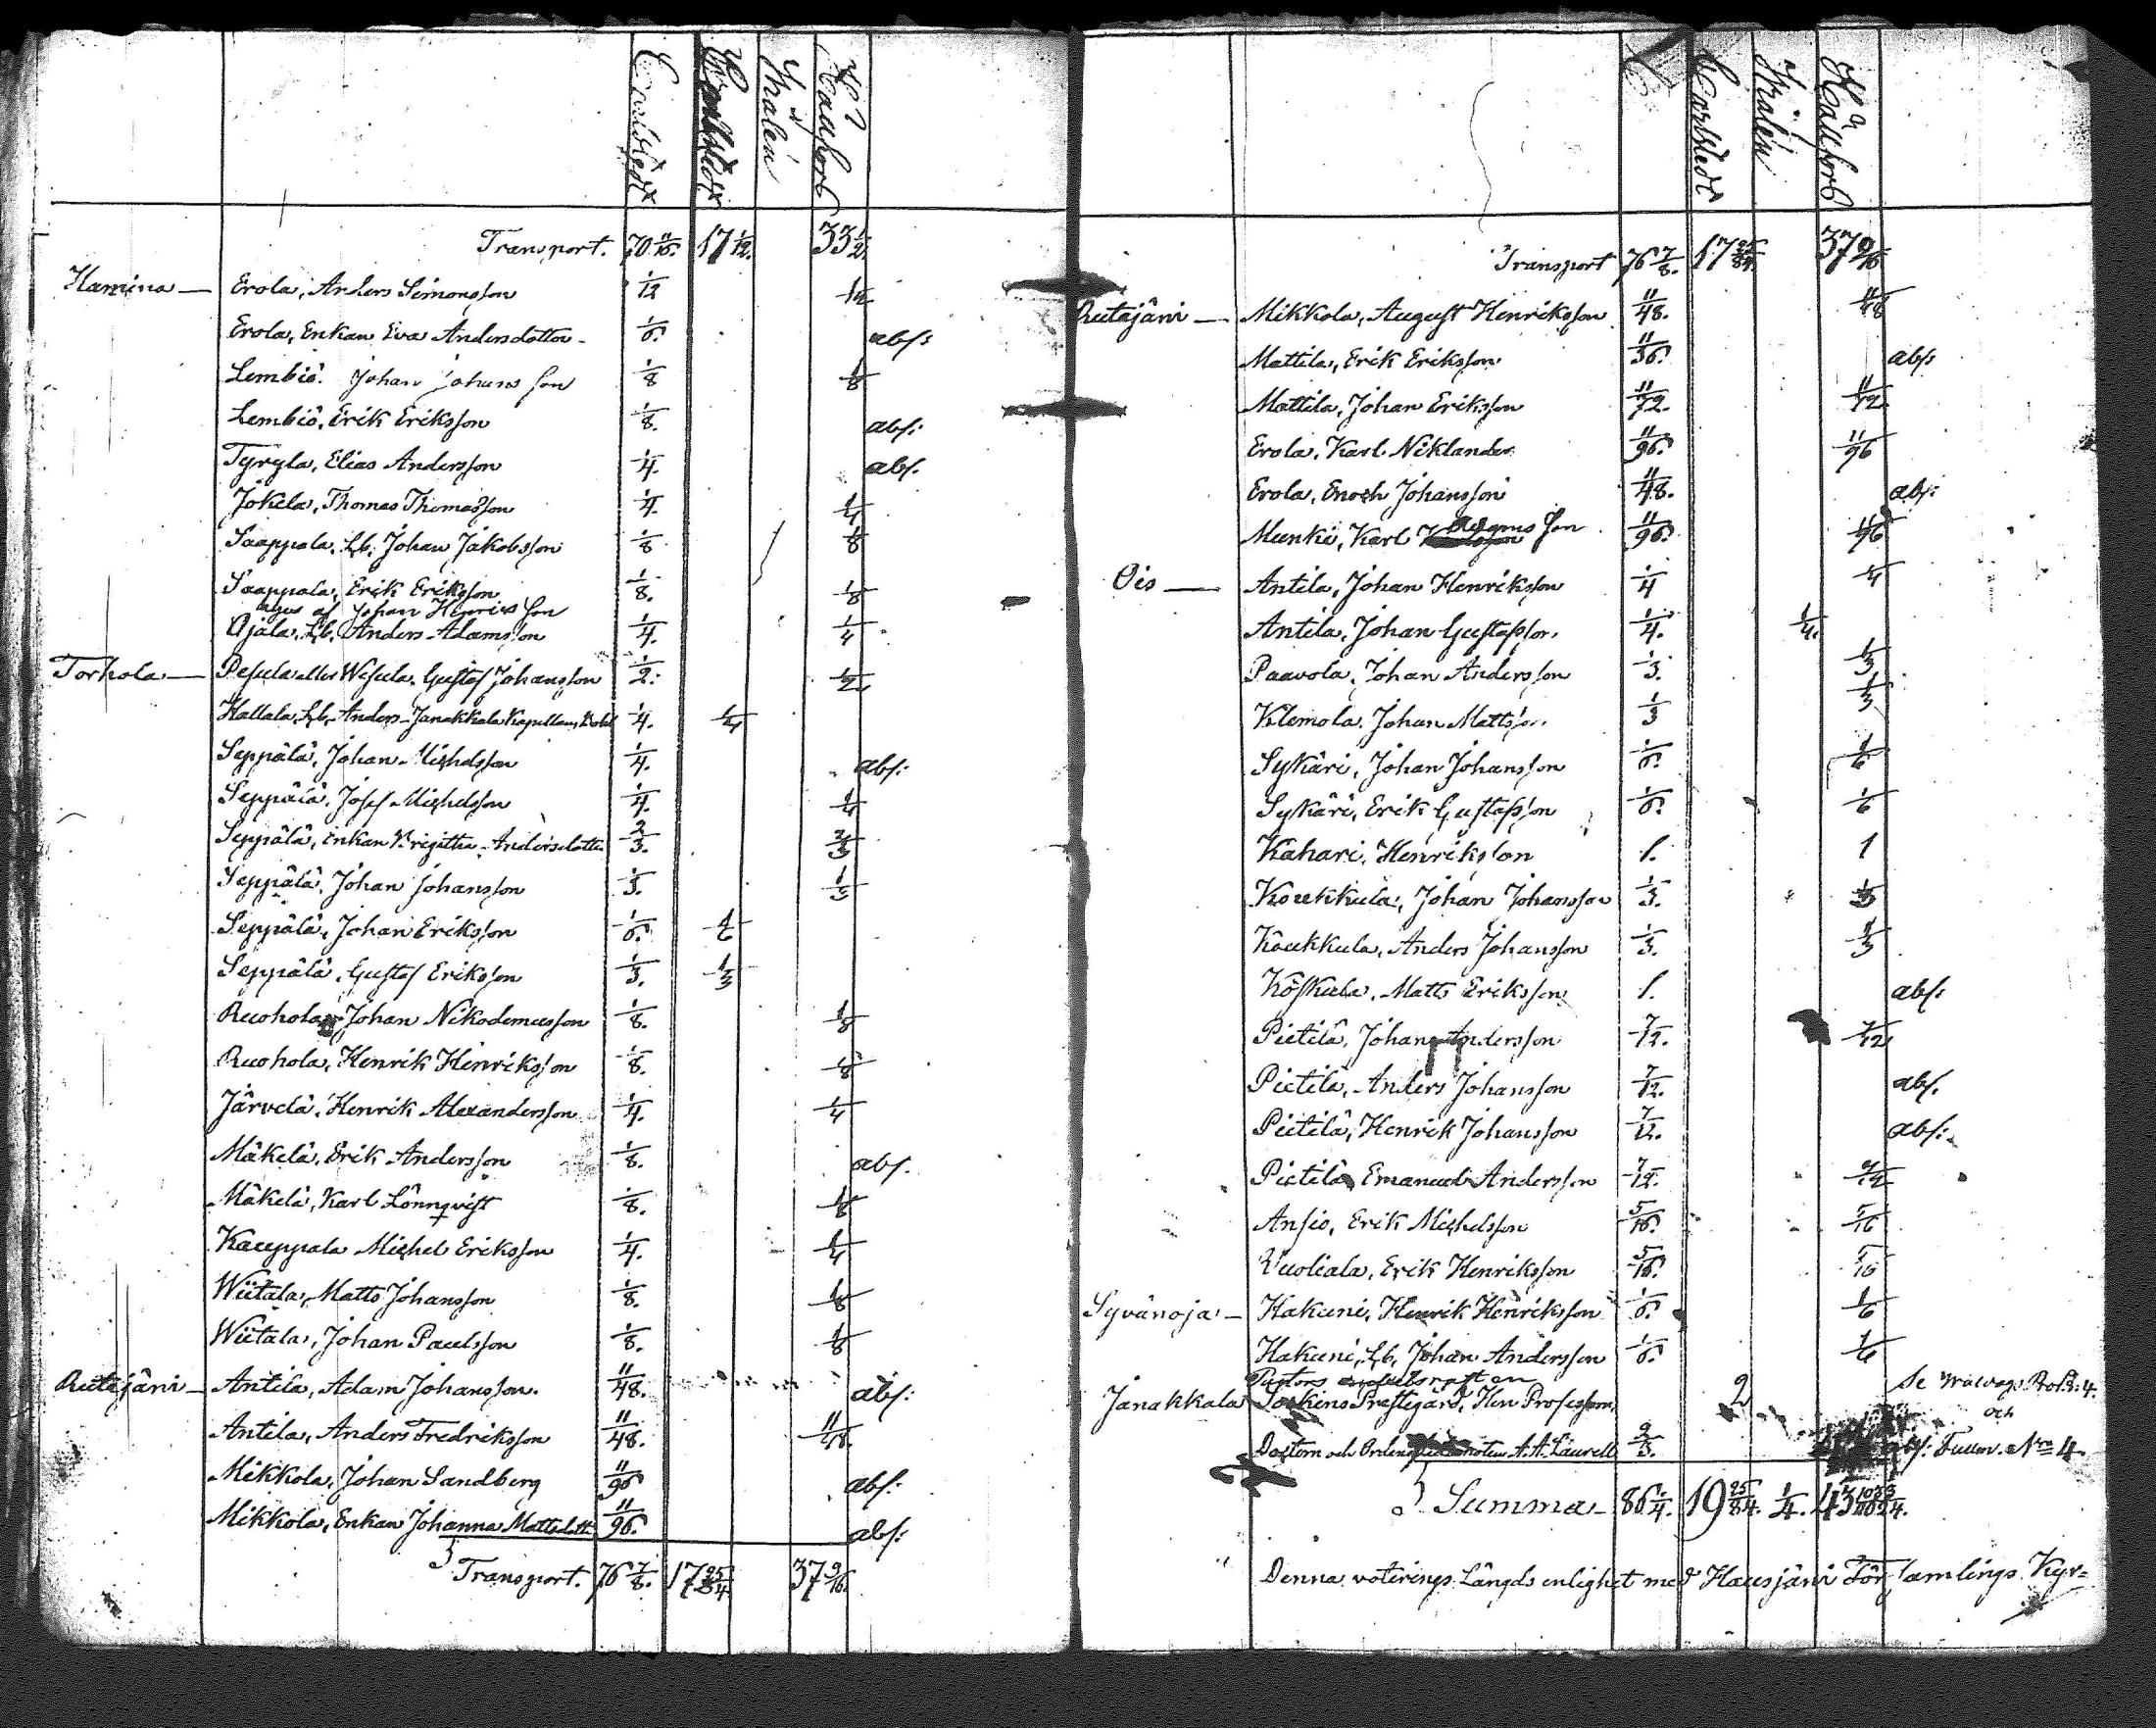 Transport. 70 11/16. 17 1/12. 33 1/2.
Hamina — Erola, Anders Simonsson 1/12 1/12
Erola, Enkan Eva Andersdotter 1/6. abs:
Lembiö. Johan Johansson 1/8 1/8
Lembiö, Erik Eriksson 1/8. abs:
Tyrylä, Elias Andersson 1/4. abs.
Jokela, Thomas Thomasson 1/4. 1/4
Saappala, Lb. Johan Jakobsson 1/8 1/8
Saappala, Erik Eriksson 1/8. 1/8
äges af Johan Henriksson
Ojala, Lb. Anders Adamsson 1/4. 1/4
Torhola — Pesula eller Wesula, Gustaf Johansson 1/2: 1/2
Hallala, Lb. Anders Janakkala Kapellans Bohl 1/4. 1/4
Seppälä, Johan Michelsson 1/4. abs:
Seppälä, Josef Michelsson 1/4. 1/4
Seppälä, Enkan Brigitta Andersdotter 2/3. 2/3
Seppälä, Johan Johansson 1/3. 1/3
Seppälä, Johan Eriksson 1/6. 1/6
Seppälä, Gustaf Eriksson 1/3. 1/3
Ruohola, Johan Nikodemusson 1/8. 1/8
Ruohola, Henrik Henriksson 1/8. 1/8
Järvelä, Henrik Alexandersson 1/4. 1/4
Mäkelä, Erik Andersson 1/8. abs.
Mäkelä, Karl Lönnqvist 1/8. 1/8
Kauppala Michel Eriksson 1/4. 1/4
Wiitala, Matts Johansson 1/8. 1/8
Wiitala, Johan Paulsson 1/8. 1/8
Rutajärvi — Antila, Adam Johansson. 11/48. abs:
Antila, Anders Fredriksson 11/48. 11/48.
Mikkola, Johan Sandberg 11/96 abs:
Mikkola, Enkan Johanna Mattsdott. 11/96. abs:
Transport. 76 7/8. 17 25/84. 37 9/16.
Carlstedt
Ståhlen
Transport 76 7/8. 17 25/84. 37 9/16
Rutajärvi — Mikkola, August Henriksson 11/48. 11/48
Mattila, Erik Eriksson 11/36. abs
Mattila, Johan Eriksson 11/72. 11/72.
Erola, Karl Niklander 11/96. 11/96
Erola, Enoch Johansson 11/48. abs:
Munki, Karl Adamsson 11/96. 11/96
Ois — Antila, Johan Henriksson 1/4 1/4
Antila, Johan Gustafsson. 1/4. 1/4.
Paavola, Johan Andersson 1/3. 1/3
Klemola, Johan Mattsson. 1/3 1/3
Sykäri, Johan Johansson 1/6. 1/6
Sykäri, Erik Gustafsson 1/6. 1/6
Kahari, Henriksson 1. 1
Koukkula, Johan Johansson 1/3. 1/3
Koukkula, Anders Johansson 1/3. 1/3
Köskula, Matts Eriksson 1. abs:
Pietilä, Johan Andersson 7/12. 7/12
Pietilä, Anders Johansson 7/12. abs.
Pietilä, Henrik Johansson 7/12. abs:
Pietilä, Emanuel Andersson 7/12. 7/12
Ansio, Erik Michelsson 5/16. 5/16
Vuoliala, Erik Henriksson 5/16. 5/16
Syvänoja — Hakuni, Henrik Henriksson 1/6. 1/6
Hakuni, Lb. Johan Andersson 1/6. 1/6
Pastors
Janakkala Sockens Prestgård, Herr Professorn, 2 Se
och
Doctorn och A. A. Laurell 2/3. Fullm. Nro 4
Summa — 86 1/4. 19 25/84. 1/4.
Denna voterings Längds enlighet med Hausjärvi Församlings Kyr=